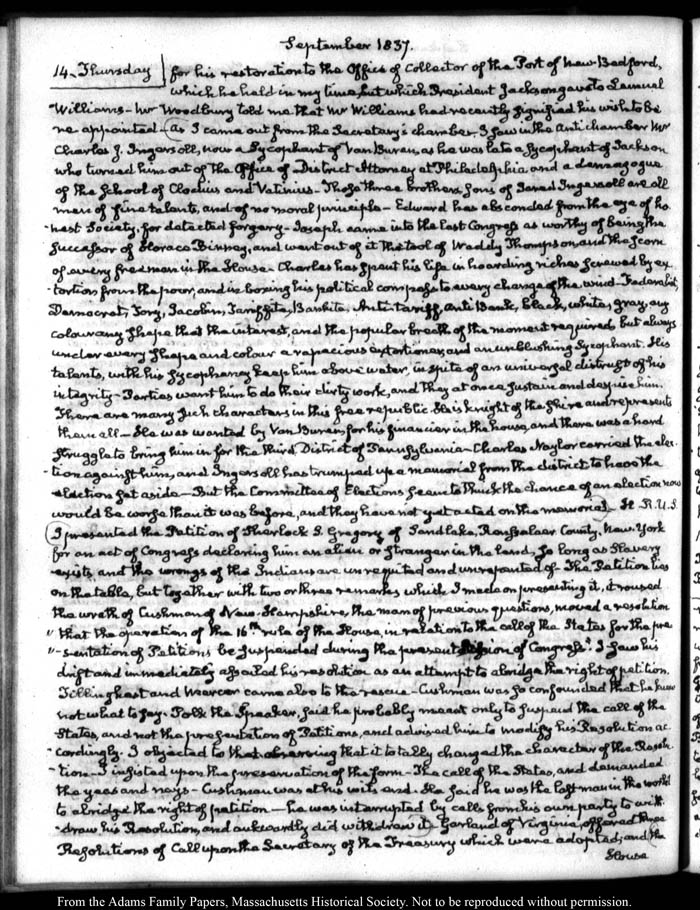 September 1837.
14. Thursday for his restoration to the Office of Collector of the Port of New-Bedford,
which he held in my time, but which President Jackson gave to Lemuel
Williams - Mr Woodbury told me that Mr Williams had recently signified his wish to be
re appointed - As I came out from the Secretary's chamber I saw in the antichamber Mr
Charles J. Ingersoll, now a Sycophant of Van Buren, as he was late a Sycophant of Jackson
who turned him out of the Office of District Attorney at Philadelphia and a demagogue
of the School of Clodius and Vatinius - These three brothers, sons of Jared Ingersoll are all
men of fine talents, and of no moral principle - Edward has absconded from the eye of ho
-nest Society, for detected forgery - Joseph came into the last Congress as worthy of being the
Successor of Horace Binney, and went out of it the tool of Waddy Thompson and the scorn
of every freeman in the House - Charles has spent his life in hoarding riches screwed by ex
-tortion from the poor, and in boxing his political compass to every change of the wind - Federalist,
Democrat, Tory, Jacobin, Tariffite, Bankite, Anti-tariff, anti Bank, black, white, gray, any
colour any shape that the interest, and the popular breath of the moment required, but always
under every shape and colour a rapacious extortioner, and an unblushing Sycophant. His
talents, with his Sycophancy keep him above water, in spite of an universal distrust of his
integrity - Parties want him to do their dirty work, and they at once sustain and despise him.
There are many such characters in this free republic. He is knight of the shire and represents
them all - He was wanted by Van Buren for his financier in the house, and there was a hard
struggle to bring him in for the third District of Pennsylvania - Charles Naylor carried the elec
-tion against him, and Ingersoll has trumped up a memorial from the district to have the
election set aside - But the Committee of Elections seem to think the chance of an election now
would be worse than it was before, and they have not yet acted on the memorial - H. R. U. S.
I presented the Petition of Sherlock S. Gregory of Sandlake, Rensselaer County, New York
for an act of Congress declaring him an alien or stranger in the land, so long as Slavery
exists, and the wrongs of the Indians are unrequited and unrepented of - The Petition lies
on the table, but together with two or three remarks which I made on presenting it, it roused
the wrath of Cushman of New-Hampshire, the man of previous questions, moved a resolution
" that the operation of the 16th rule of the House, in relation to the call of the States for the pre
" -sentation of Petitions be suspended during the present Session of Congress". I saw his
drift and immediately assailed his resolution as an attempt to abridge the right of petition.
Tillinghast and Mercer came also to the rescue - Cushman was so confounded that he knew
not what to say. Polk the Speaker, said he probably meant only to suspend the call of the
States, and not the presentation of Petitions, and advised him to modify his Resolution ac
-cordingly. I objected to that observing that it totally changed the character of the Resolu
-tion - I insisted upon the preservation of the form - The call of the States, and demanded
the yeas and nays - Cushman was at his wits end. He said he was the last man in the world
to abridge the right of petition - he was interrupted by calls from his own party to with
-draw his Resolution, and awkwardly did withdraw it - Garland of Virginia, offered three
Resolutions of Call upon the Secretary of the Treasury which were adopted; and the
House
From the Adams Family Papers, Massachusetts Historical Society. Not to be reproduced without permission.